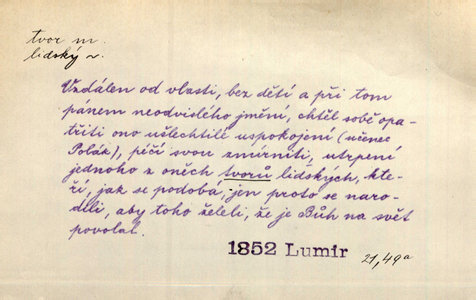 tvor m.
lidský
Vzdálen od vlasti, bez dětí a při tom
pánem neodvislého jmění, chtěl sobě opa-
třiti ono ušlechtilé uspokojení (učenec
Polák), péčí svou zmírniti, utrpení
jednoho z oněch tvorů lidských, kte-
ří, jak se podobá, jen proto se naro-
dili, aby toho želeli, že je Bůh na svět
povolal.
1852 Lumir
21,49a